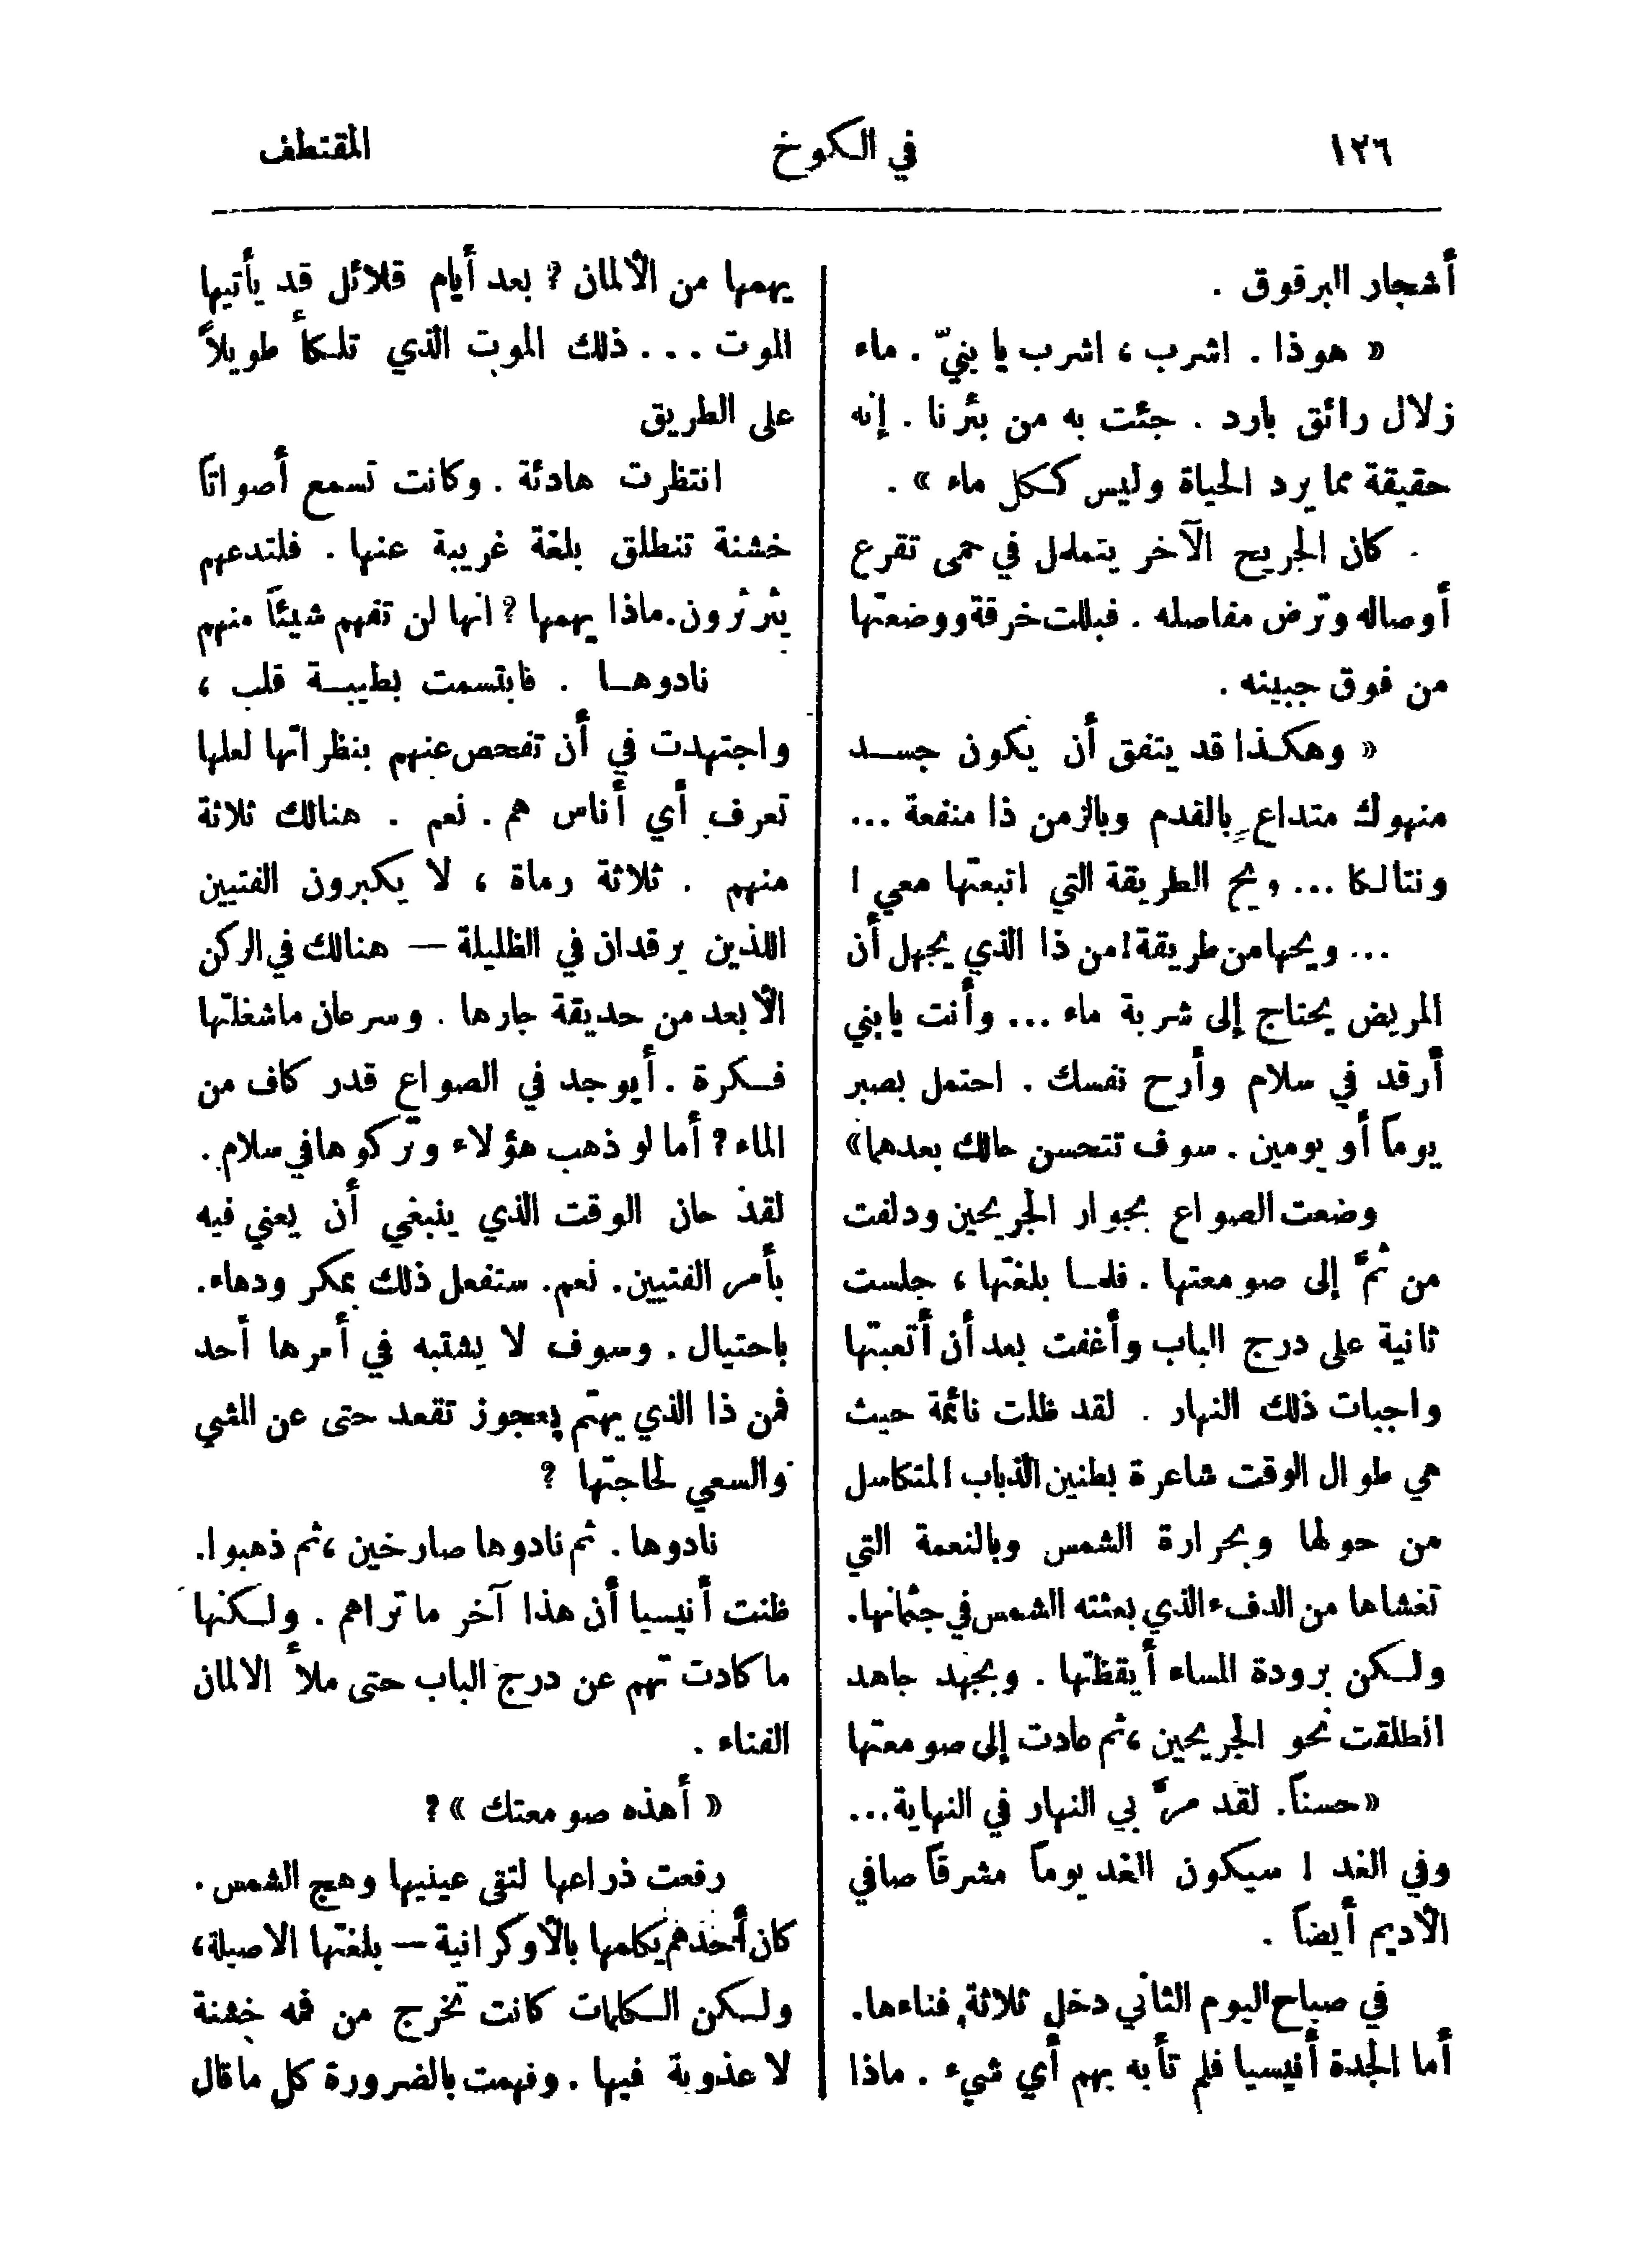 ١٢٦ في الكوخ المقتطف
أشجار البرقوق .
« هوذا . اشرب ، اشرب يا بنيّ . ماء
زلال رائق بارد . جئت به من بئرنا . إنه
حقيقة مما يرد الحياة وليس ككل ماء » .
كان الجريح الآخر يتململ في حمى تقرع
أوصاله وترض مفاصله . فبللت خرقة ووضعتها
من فوق جبينه .
« وهكذا قد يتفق أن يكون جسد
منهوك متداعٍ بالقدم وبالزمن ذا منفعة ...
ونتالكا ... ويح الطريقة التي اتبعتها معي !
... ويحها من طريقة ! من ذا الذي يجهل أن
المريض يحتاج إلى شربة ماء ... وأنت يا بني
أرقد في سلام وأرح نفسك . احتمل بصبر
يوماً أو يومين . سوف تتحسن حالك بعدهما »
وضعت الصواع بجوار الجريحين ودلفت
من ثمَّ إلى صومعتها . فلما بلغتها ، جلست
ثانية على درج الباب وأغفت بعد أن أتعبتها
واجبات ذلك النهار . لقد ظلت نائمة حيث
هي طوال الوقت شاعرة بطنين الذباب المتكاسل
من حولها وبحرارة الشمس وبالنعمة التي
تغشاها من الدفء الذي بعثته الشمس في جثمانها .
ولكن برودة المساء أيقظتها . وبجهد جاهد
انطلقت نحو الجريحين ، ثم عادت إلى صومعتها
« حسناً . لقد مرَّ بي النهار في النهاية ...
وفي الغد ! سيكون الغد يوماً مشرقاً صافي
الأديم أيضاً .
في صباح اليوم الثاني دخل ثلاثة فناءها .
أما الجدة أنيسيا فلم تأبه بهم أي شيء . ماذا
يهمها من الألمان ؟ بعد أيام قلائل قد يأتيها
الموت ... ذلك الموت الذي تلكأ طويلاً
على الطريق
انتظرت هادئة . وكانت تسمع أصواتاً
خشنة تنطلق بلغة غريبة عنها . فلتدعهم
يثرثرون . ماذا يهمها ؟ انها لن تفهم شيئاً منهم
نادوها . فابتسمت بطيبة قلب ،
واجتهدت في أن تفحص عنهم بنظراتها لعلها
تعرف أي أناس هم . نعم . هنالك ثلاثة
منهم . ثلاثة رماة ، لا يكبرون الفتيين
اللذين يرقدان في الظليلة — هنالك في الركن
الأبعد من حديقة جارها . وسرعان ما شغلتها
فكرة . أيوجد في الصواع قدر كاف من
الماء ؟ أما لو ذهب هؤلاء وتركوها في سلام .
لقد حان الوقت الذي ينبغي أن يعنى فيه
بأمر الفتيين . نعم . ستفعل ذلك بمكر ودهاء .
باحتيال . وسوف لا يشتبه في أمرها أحد
فمن ذا الذي يهتم بعجوز تقعد حتى عن المشي
والسعي لحاجتها ؟
نادوها . ثم نادوها صارخين ، ثم ذهبوا .
ظنت أنيسيا أن هذا آخر ما تراهم . ولكنها
ما كادت تهم عن درج الباب حتى ملأ الالمان
الفناء .
« أهذه صومعتك » ؟
رفعت ذراعها لتقى عينيها وهج الشمس .
كان أحدهم يكلمها بالأوكرانية — بلغتها الاصيلة ،
ولكن الكلمات كانت تخرج من فمه خشنة
لا عذوبة فيها . وفهمت بالضرورة كل ما قال